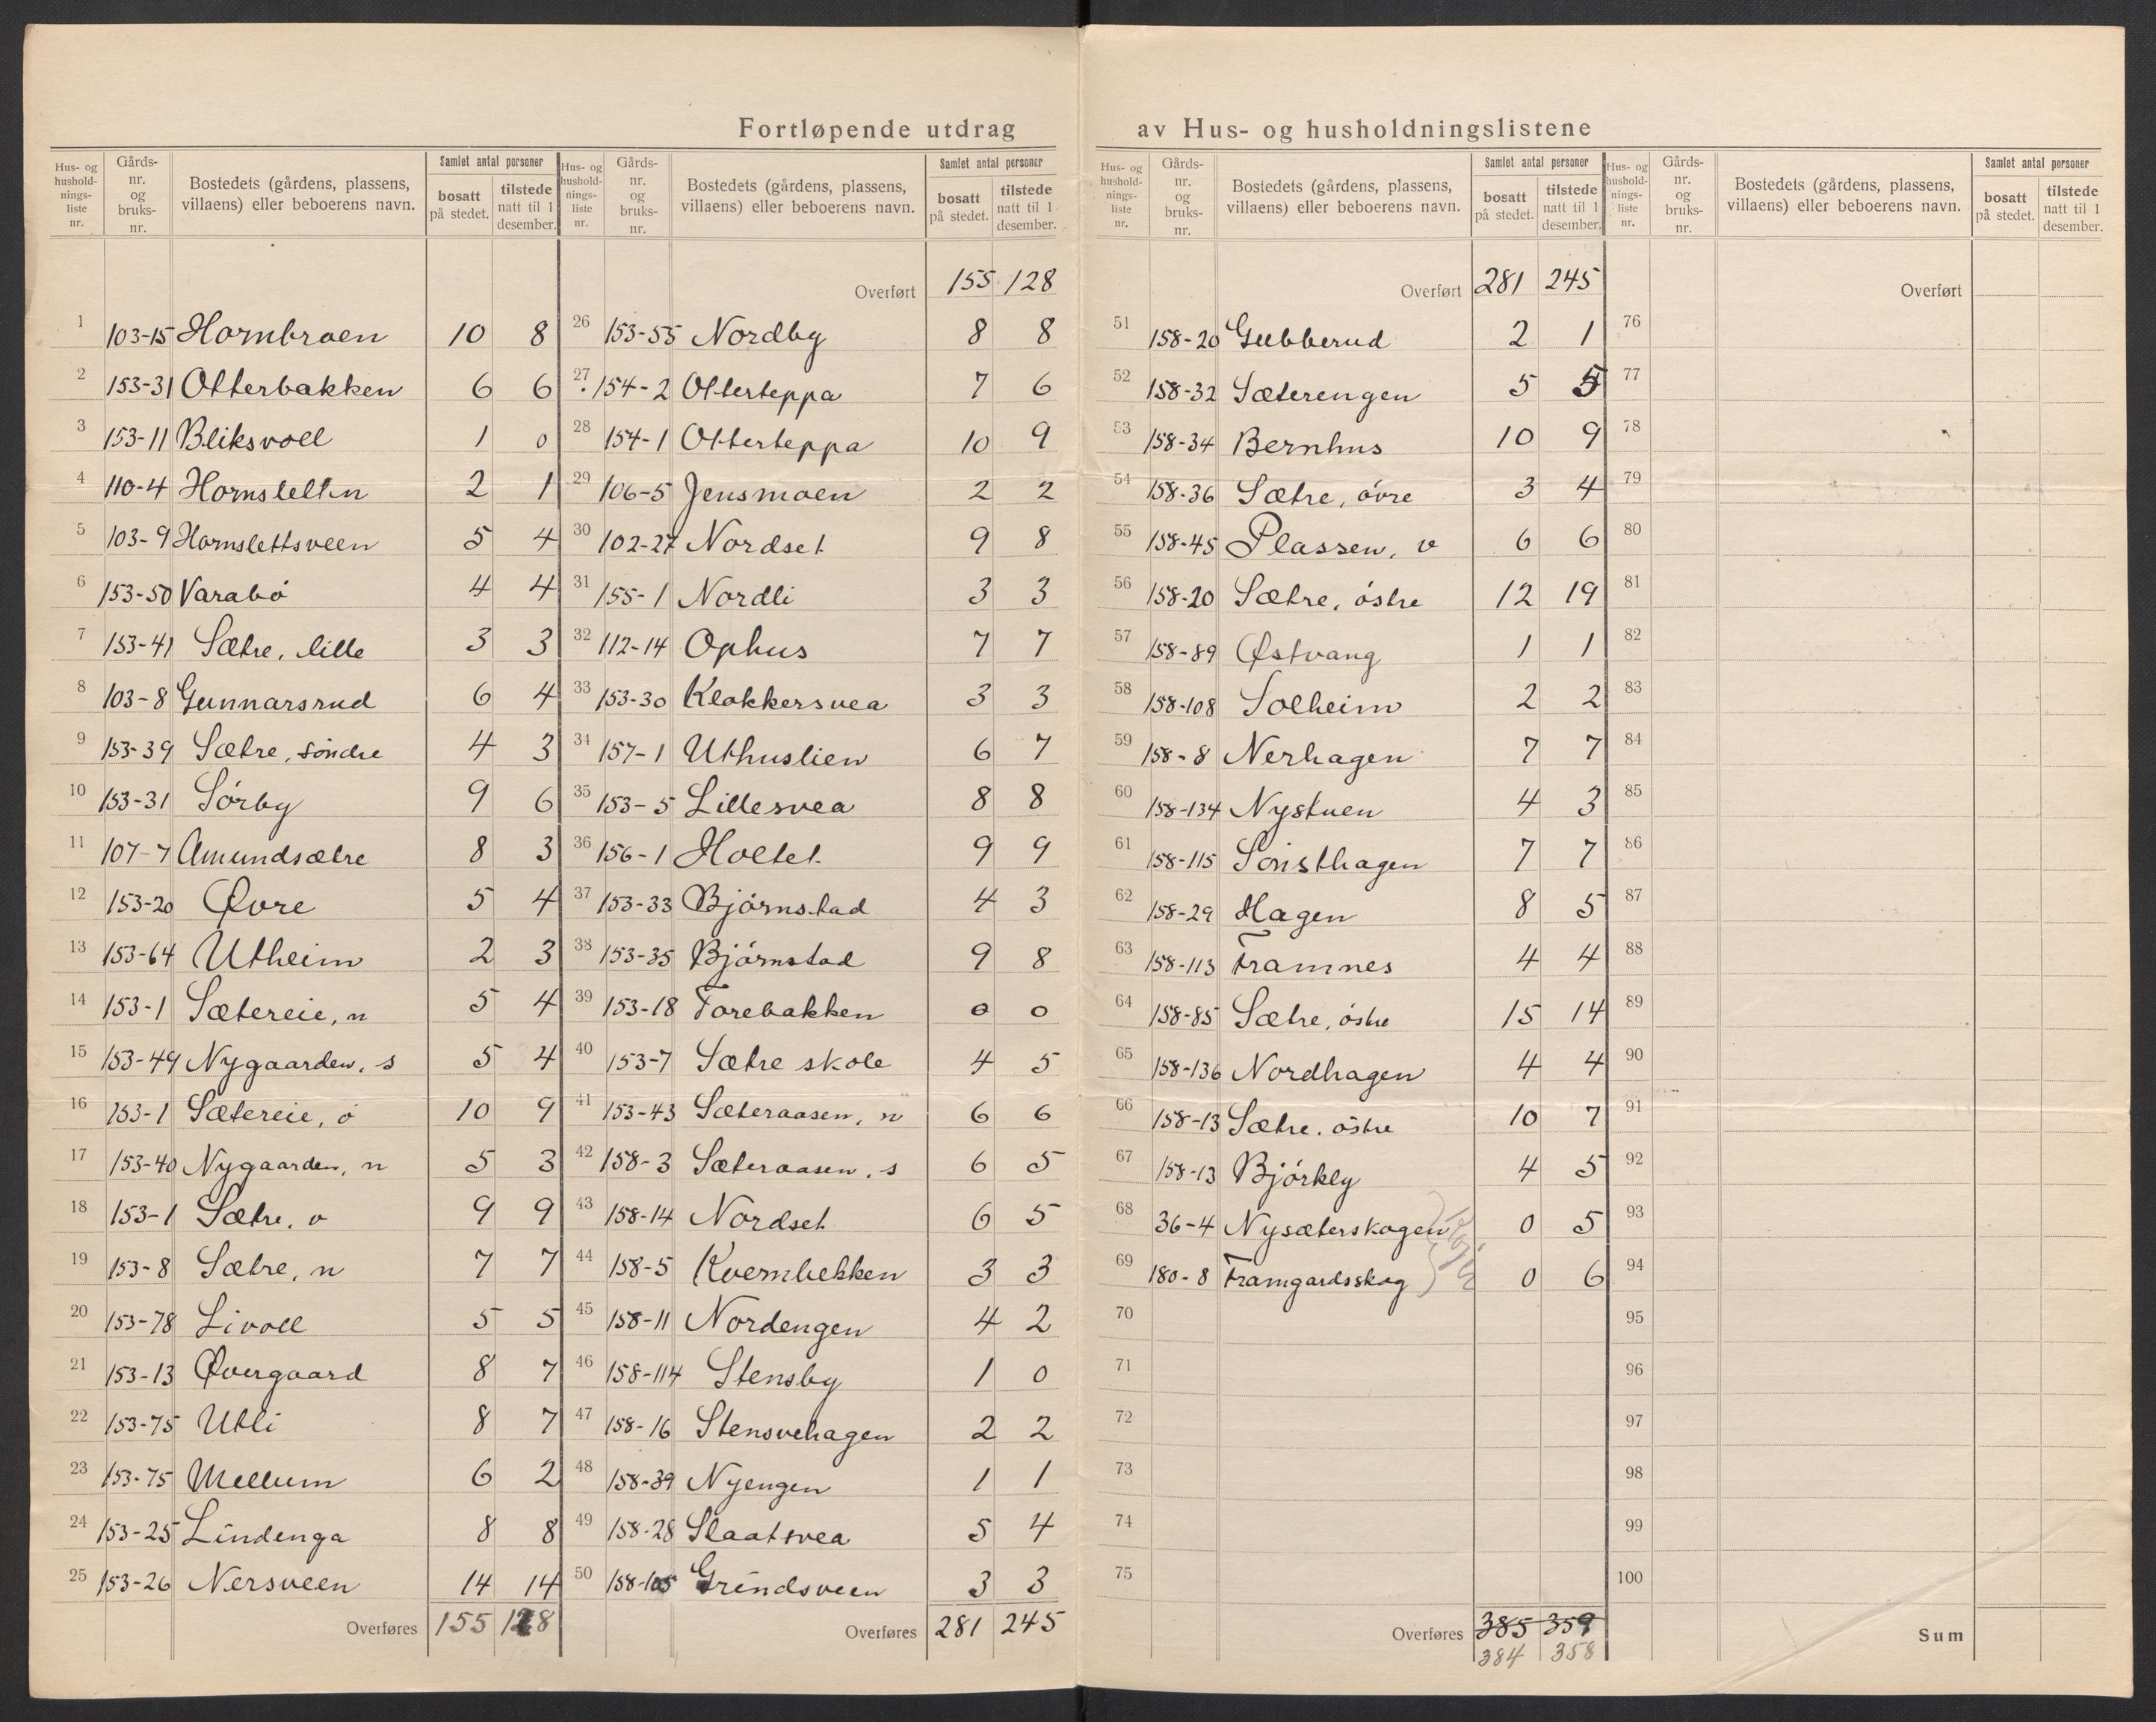 Fortløpende utdrag av Hus- og husholdningslistene
Hus- og husholdnings-liste nr. | Gårds-nr. og bruks-nr. | Bostedets (gårdens, plassens, villaens) eller beboerens navn. | Samlet antal personer | bosatt på stedet. | tilstede natt til 1 desember.
1 103-15 Hornbroen 10 8
2 153-31 Otterbakken 6 6
3 153-11 Bliksvoll 1 0
4 110-4 Hornsletten 2 1
5 103-9 Hornslettsveen 5 4
6 153-50 Varabö 4 4
7 153-41 Sætre, lille 3 3
8 103-8 Gunnarsrud 6 4
9 153-39 Sætre, söndre 4 3
10 153-31 Sörby 9 6
11 107-7 Amundsætre 8 3
12 153-20 Øvre 5 4
13 153-64 Utheim 2 3
14 153-1 Sætereie, n 5 4
15 153-49 Nygaarden, s 5 4
16 153-1 Sætereie, ö 10 9
17 153-40 Nygaarden, n 5 3
18 153-1 Sætre, v 9 9
19 153-8 Sætre, n 7 7
20 153-78 Livoll 5 5
21 153-13 Øvergaard 8 7
22 153-75 Utli 8 7
23 153-75 Mellum 6 2
24 153-25 Lindenga 8 8
25 153-26 Nersveen 14 14
Overføres 155 128
Hus- og husholdnings-liste nr. | Gårds-nr. og bruks-nr. | Bostedets (gårdens, plassens, villaens) eller beboerens navn. | Samlet antal personer | bosatt på stedet. | tilstede natt til 1 desember.
Overført 155 128
26 153-55 Nordby 8 8
27 154-2 Otterteppa 7 6
28 154-1 Otterteppa 10 9
29 106-5 Jensmoen 2 2
30 102-27 Nordset 9 8
31 155-1 Nordli 3 3
32 112-14 Ophus 7 7
33 153-30 Klokkersvea 3 3
34 157-1 Uthuslien 6 7
35 153-5 Lillesvea 8 8
36 156-1 Holtet 9 9
37 153-33 Björnstad 4 3
38 153-35 Björnstad 9 8
39 153-18 Torebakken 0 0
40 153-7 Sætre skole 4 5
41 153-43 Sæteraasen, n 6 6
42 158-3 Sæteraasen, s 6 5
43 158-14 Nordset 6 5
44 158-5 Kvernbekken 3 3
45 158-11 Nordengen 4 2
46 158-114 Stensby 1 0
47 158-16 Stensvehagen 2 2
48 158-39 Nyengen 1 1
49 158-28 Slaatsvea 5 4
50 158-105 Grindsveen 3 3
Overføres 281 245
Hus- og husholdnings-liste nr. | Gårds-nr. og bruks-nr. | Bostedets (gårdens, plassens, villaens) eller beboerens navn. | Samlet antal personer | bosatt på stedet. | tilstede natt til 1 desember.
Overført 281 245
51 158-20 Gubberud 2 1
52 158-32 Sæterengen 5 5
53 158-34 Bernhus 10 9
54 158-36 Sætre, övre 3 4
55 158-45 Plassen, v 6 6
56 158-20 Sætre, östre 12 19
57 158-89 Østvang 1 1
58 158-108 Solheim 2 2
59 158-8 Nerhagen 7 7
60 158-134 Nystuen 4 3
61 158-115 Soristhagen 7 7
62 158-29 Hagen 8 5
63 158-113 Framnes 4 4
64 158-85 Sætre, östre 15 14
65 158-136 Nordhagen 4 4
66 158-13 Sætre. östre 10 7
67 158-13 Björkly 4 5
68 36-4 Nysæterskogen 0 5
69 180-8 Framgardsskog 0 6
70
71
72
73
74
75
Overføres 385 359
384 358
Hus- og husholdnings-liste nr. | Gårds-nr. og bruks-nr. | Bostedets (gårdens, plassens, villaens) eller beboerens navn. | Samlet antal personer | bosatt på stedet. | tilstede natt til 1 desember.
Overført
76
77
78
79
80
81
82
83
84
85
86
87
88
89
90
91
92
93
94
95
96
97
98
99
100
Sum